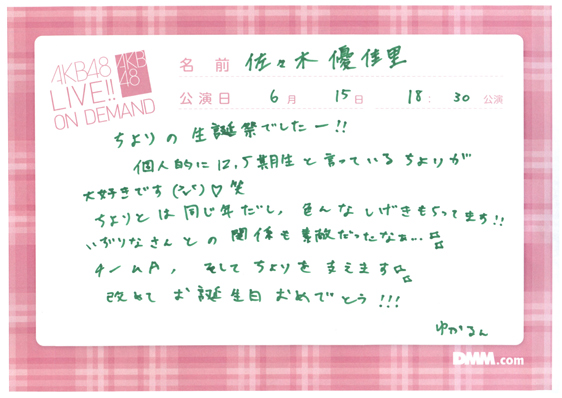 AKB48
LIVE!!
ON DEMAND
AKB
48
名前 佐々木優佳里
公演日 6月 15日 18:30 公演
ちよりの生誕祭でしたー!!
個人的に12,5期生と言っているちよりが
大好きです ♡笑
ちよりとは同じ年だし、色んなしげきもらってます!!
いずりなさんとの関係も素敵だったなぁ…
チームA、そしてちよりを支えます
改めてお誕生日おめでとう!!!
ゆかるん
DMM.com